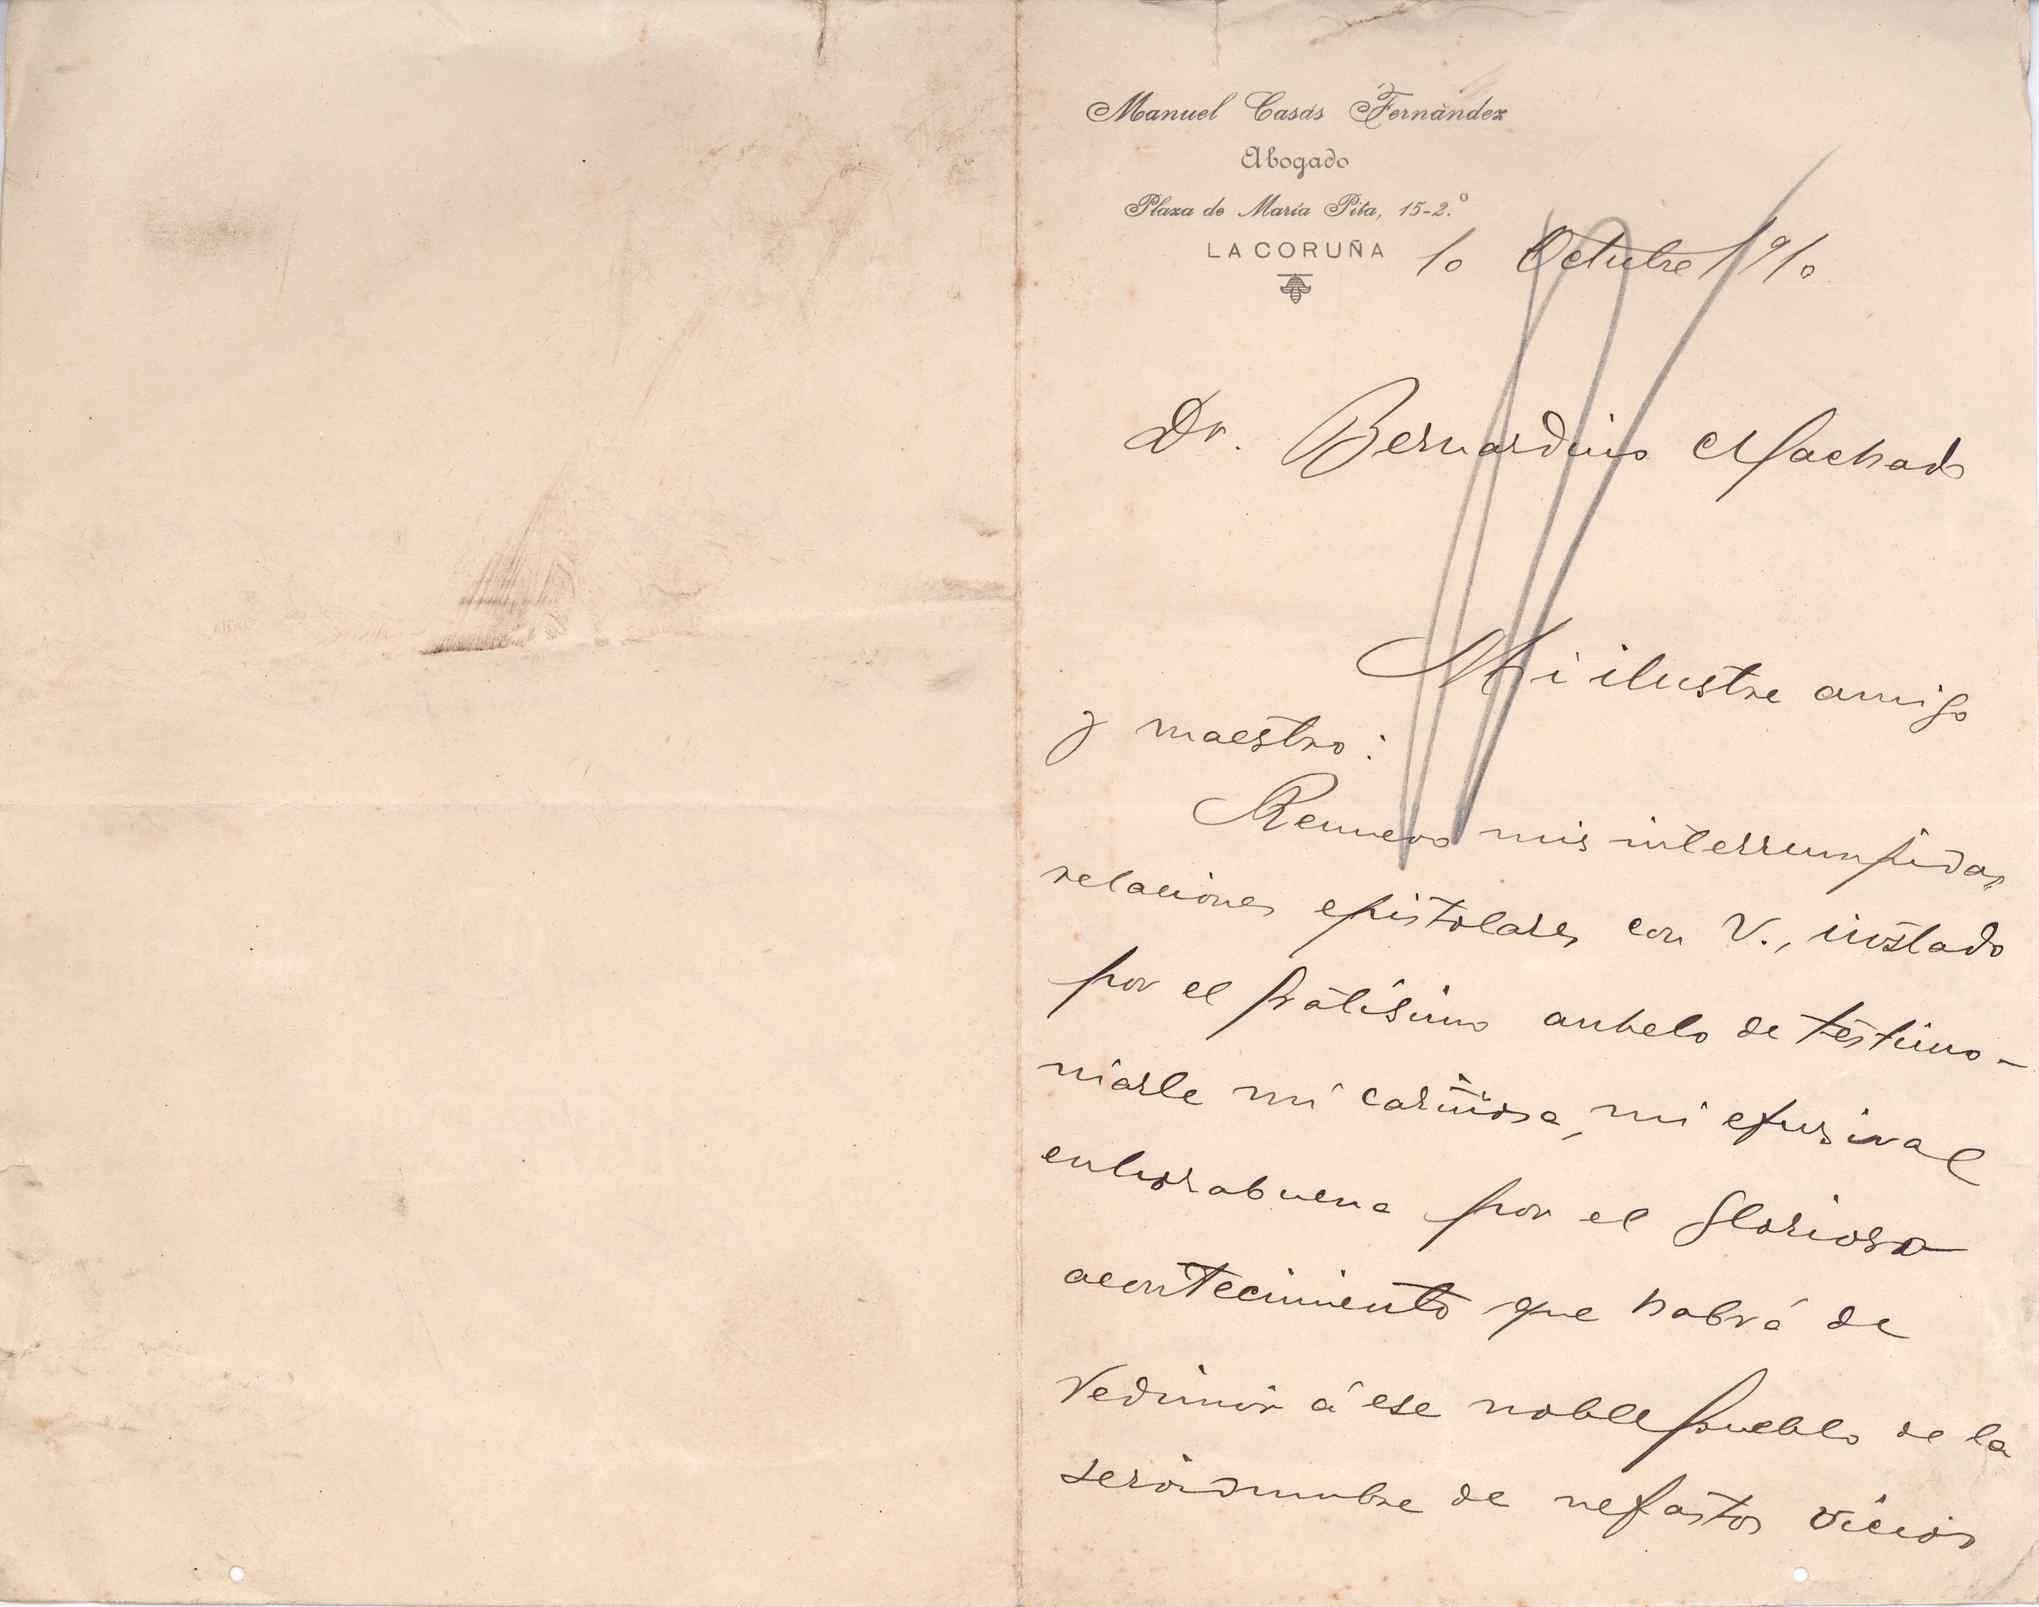 Manuel Casás Fernández
Abogado
Plaza de María Pita, 15-2.º
LA CORUÑA
10 Octubre 1910
Dr. Bernardino Machado
Mi ilustre amigo
y maestro:
Renuevo mis interrumpidas
relaciones epistolares con V., instado
por el gratísimo anhelo de testimo-
niarle mi cariñosa, mi efusiva
enhorabuena por el glorioso
acontecimiento que habrá de
redimir á ese noble pueblo de la
servidumbre de nefastos vicios